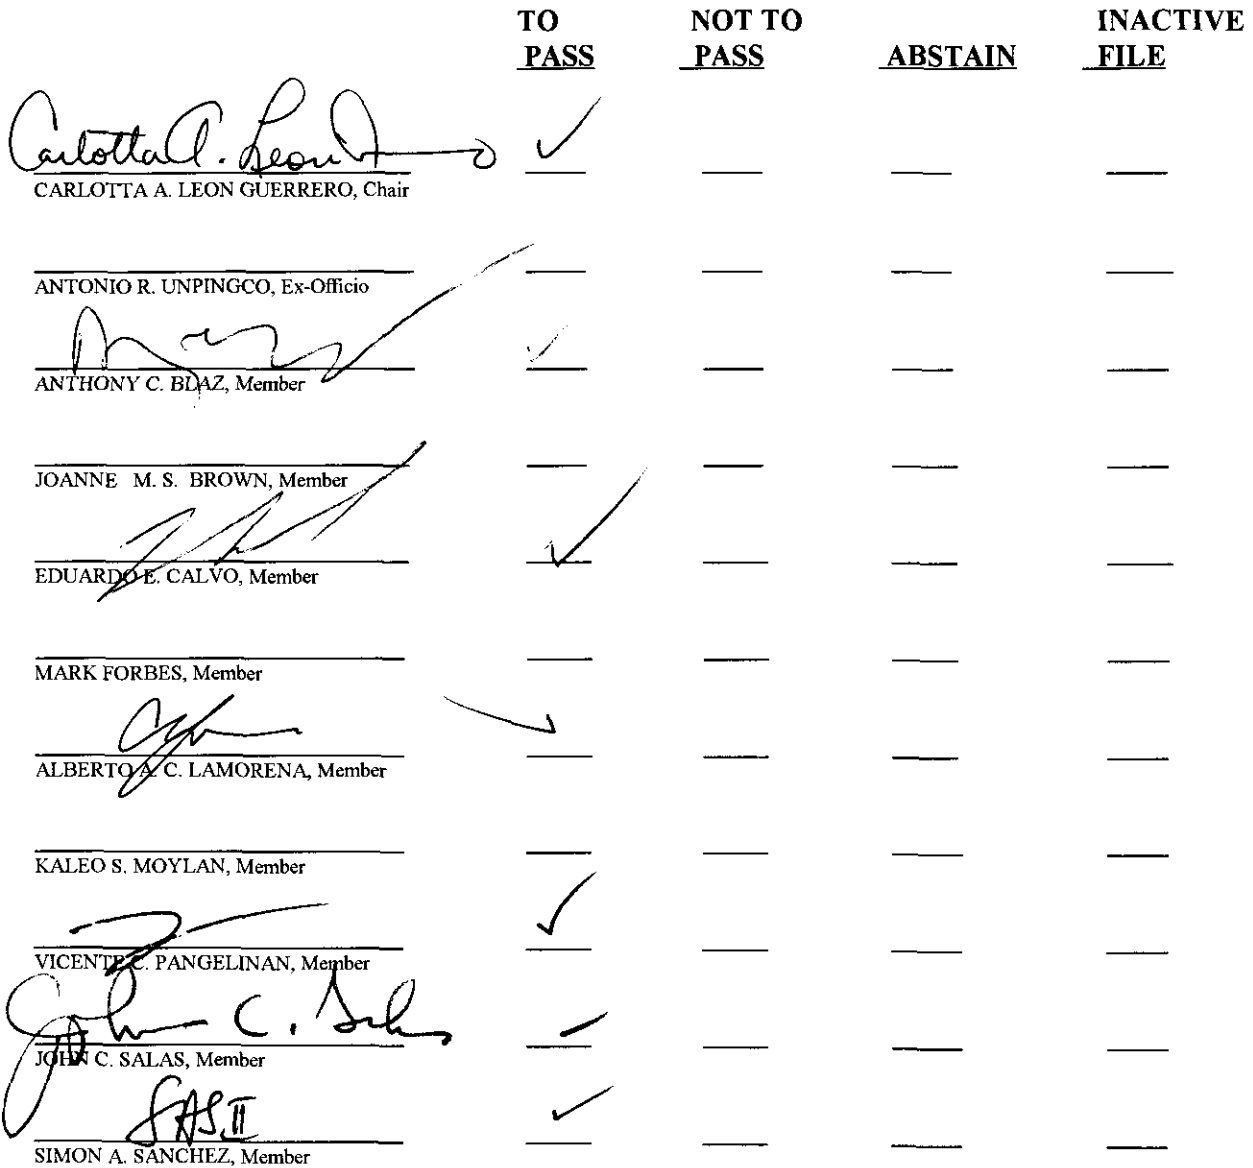 TO NOT TO INACTIVE
PASS PASS ABSTAIN FILE
Carlotta A. Leon
CARLOTTA A. LEON GUERRERO, Chair
ANTONIO R. UNPINGCO, Ex-Officio
ANTHONY C. BLAZ, Member
JOANNE M. S. BROWN, Member
EDUARDO E. CALVO, Member
MARK FORBES, Member
ALBERTO A. C. LAMORENA, Member
KALEO S. MOYLAN, Member
VICENTE C. PANGELINAN, Member
John C. Salas
JOHN C. SALAS, Member
SAS II
SIMON A. SANCHEZ, Member